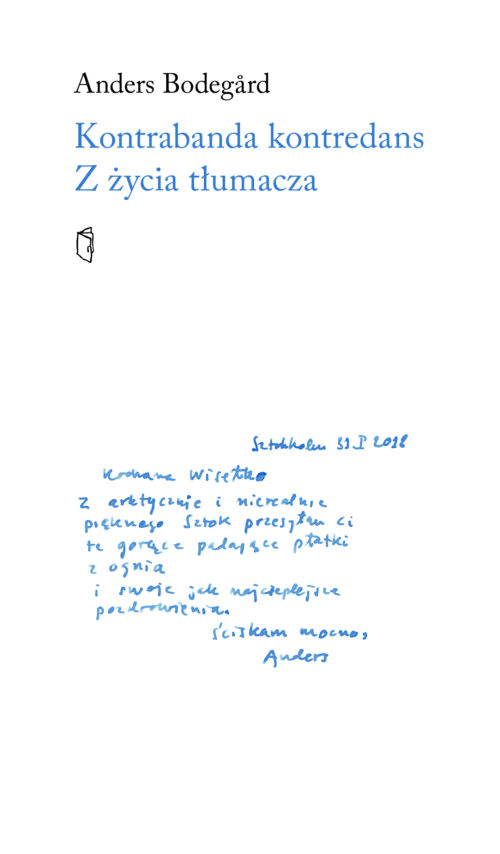 Anders Bodegård
Kontrabanda kontredans
Z życia tłumacza
Sztokholm 31 I 2018
Kochana Wisełko
z arktycznie i nierealnie
pięknego Sztok przesyłam ci
te gorące padające płatki
z ognia
i swoje jak najcieplejsze
pozdrowienia.
ściskam mocno,
Anders